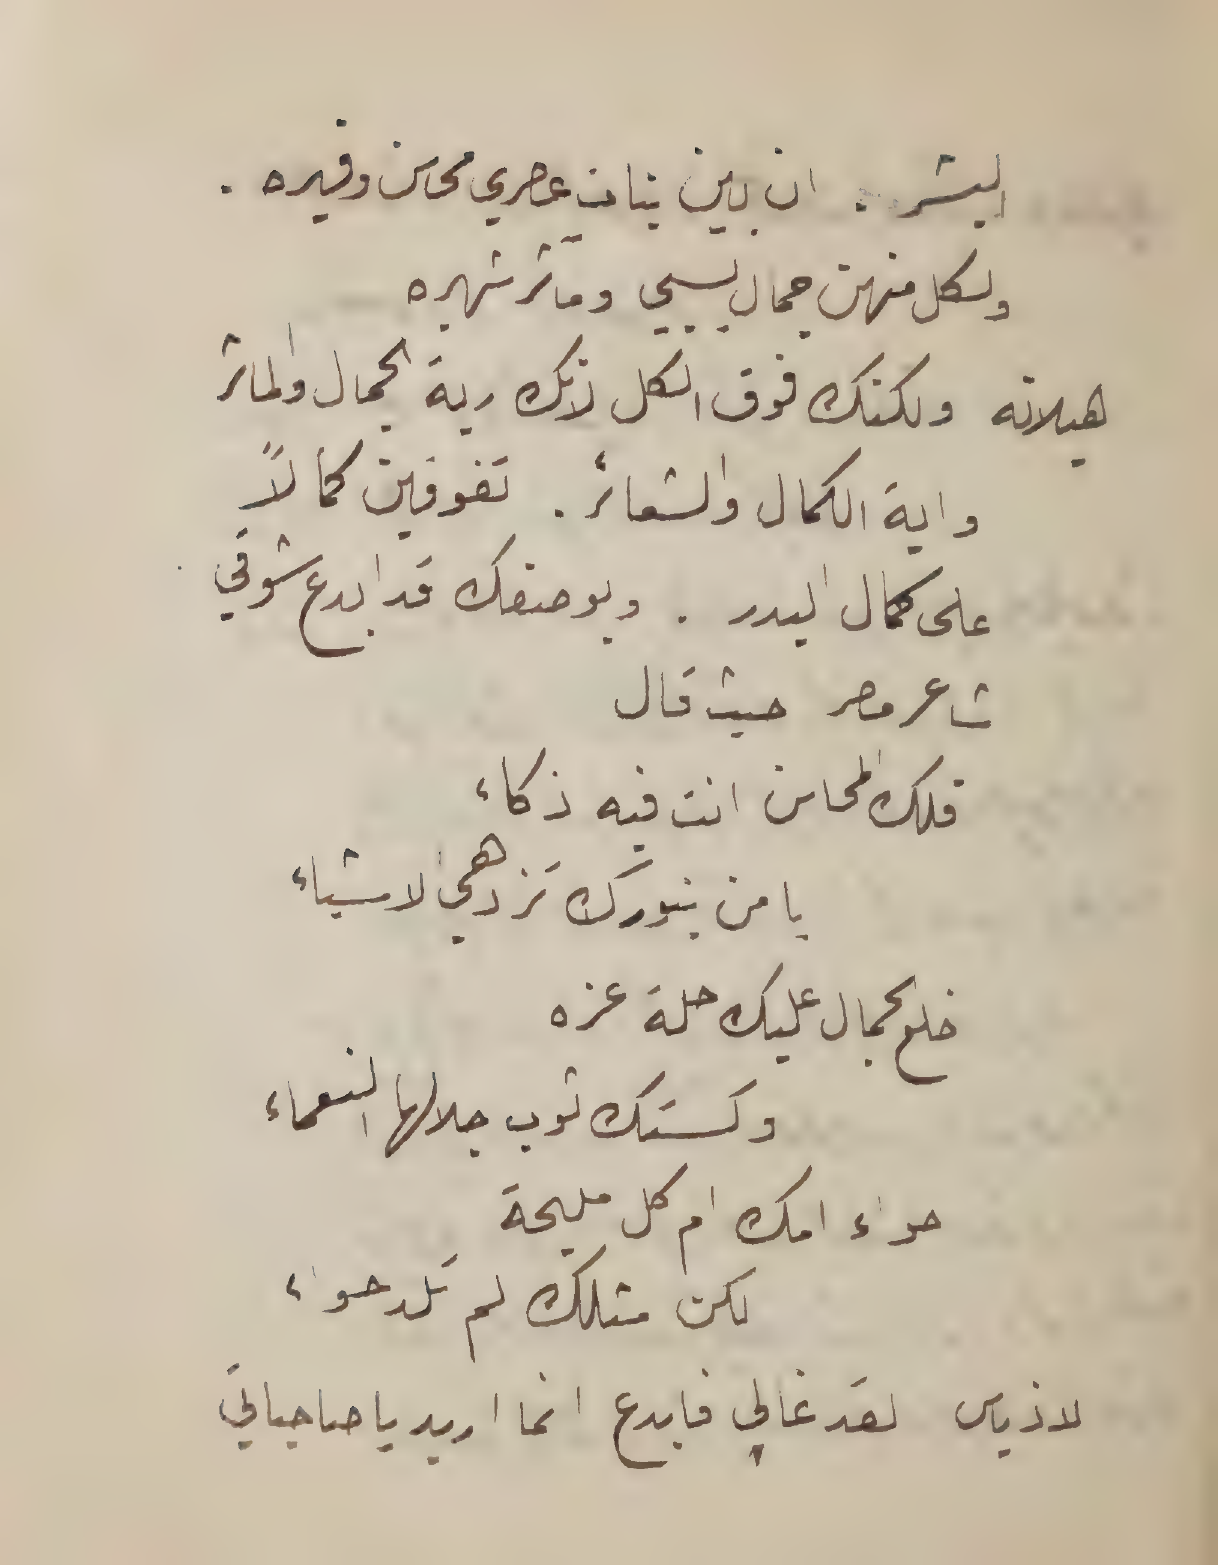 البشر . ان بين بنات عصري محاسن وفيره .
ولكل منهن جمال يسبي ومآثر شهيره
هيلانه ولكنك فوق الكل لانك ربة الجمال والمآثر
واية الكمال والشعائر . تفوقين كمالاً
على كمال البدر . وبوصفك قد ابدع شوقي
شاعر مصر حيث قال
فلك المحاسن انت فيه ذكاء
يا من بنورك تزدهي الاشياء
خلع الجمال عليك حلة عزه
وكستك ثوب جلالها النعماء
حواء امك ام كل مليحة
لكن مثلك لم تلد حواء
لاذياس لقد غالى فابدع انما اريد يا صاحباتي